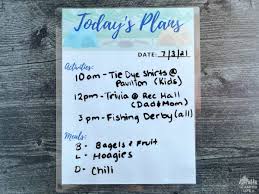 Today's Plans
DATE: 7/3/21
Activities:
10am - Tie Dye Shirts @
Pavilion (Kids)
12pm - Trivia @ Rec Hall
(Dad & Mom)
3pm - Fishing Derby (all)
Meals:
B - Bagels & Fruit
L - Hoagies
D - Chili